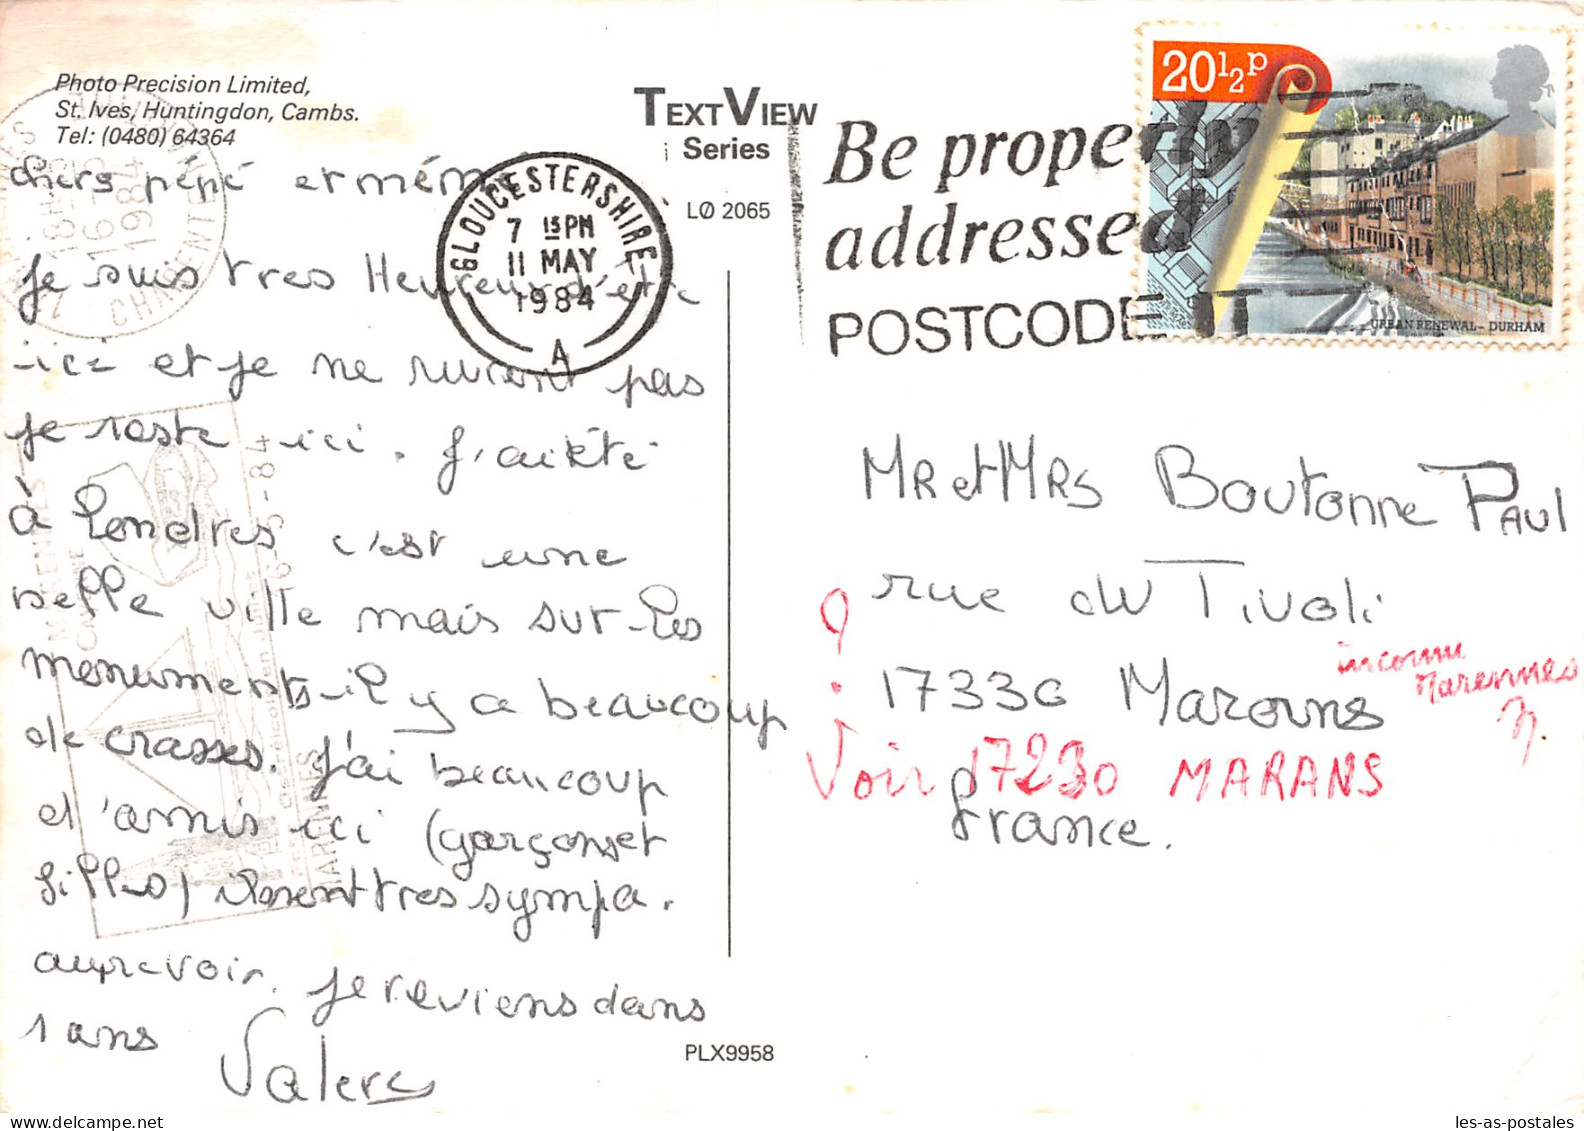 Photo Precision Limited,
St. Ives, Huntingdon, Cambs.
Tel: (0480) 64364
TEXTVIEW
Series
LØ 2065
GLOUCESTERSHIRE
7 15 PM
11 MAY
1984
A
Be properly
addressed
POSTCODE IT
20½p
URBAN RENEWAL - DURHAM
chers pépé et mémé
je suis tres Heureux d'être
ici et je ne pas
je reste ici. J'ai été
à Londres c'est une
belle ville mais sur les
monuments il y a beaucoup
de crasses. J'ai beaucoup
d'amis ici (garçons et
filles) ils sont tres sympa.
aurevoir. je reviens dans
1 ans
MR et MRS Boutonne PAUL
rue du Tivoli
17330 Marons
inconnu
Marennes
Voir 17230 MARANS
france.
PLX9958
16-5-84
MARENNES
les-as-postales